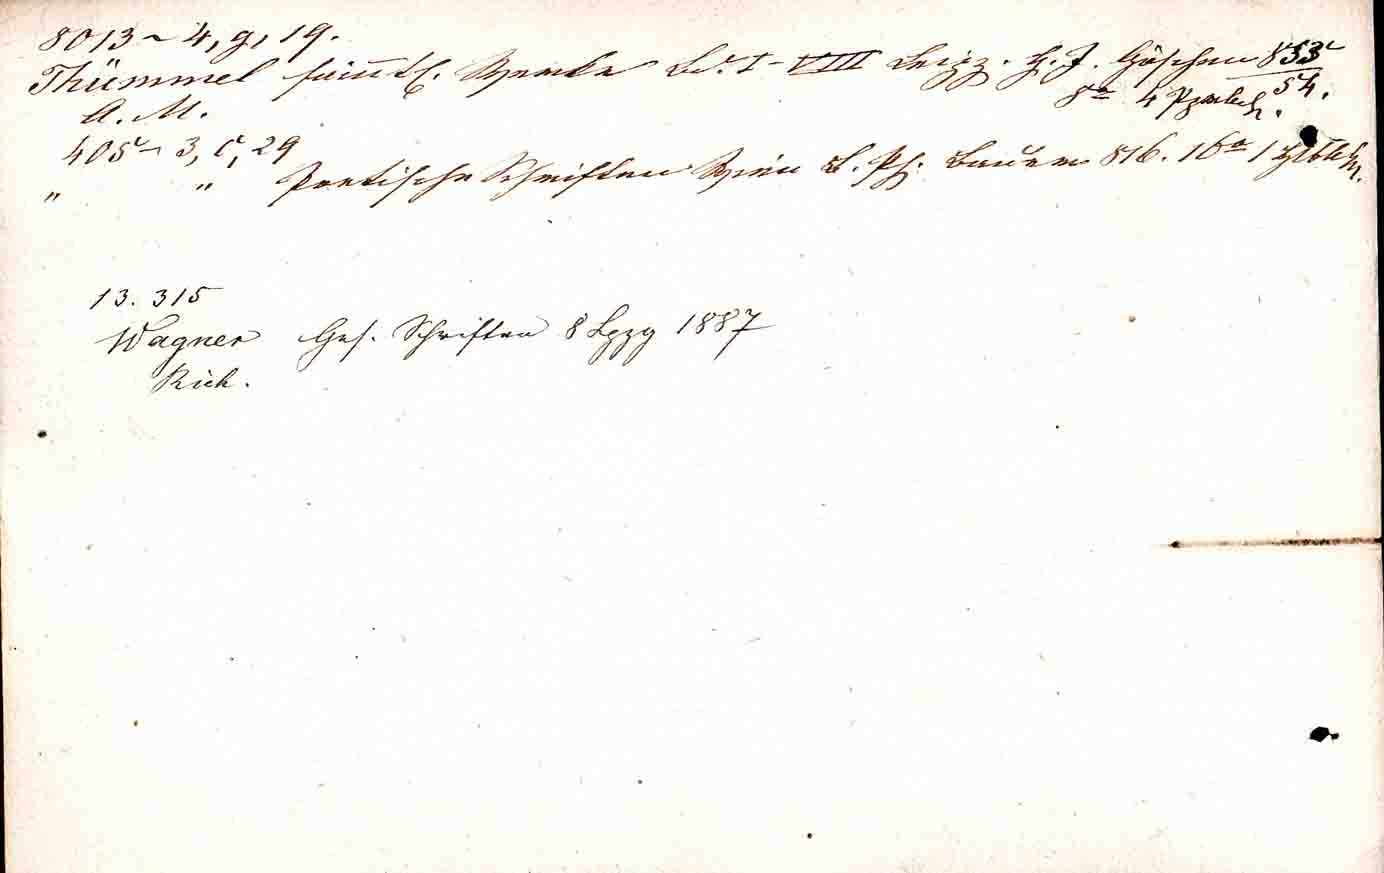 8013~ 4, g, 19.
Thümmel sämtl. Werke Bd. I-VIII Leipz. G. J. Göschen 853
A. M. 8º 4 Ppbde. 54.
405~ 3, C, 29
" " Poetische Schriften Wien B. Ph. Bauer 816. 16º 1
13. 315
Wagner Ges. Schriften 8 Lpzg 1887
Rich.